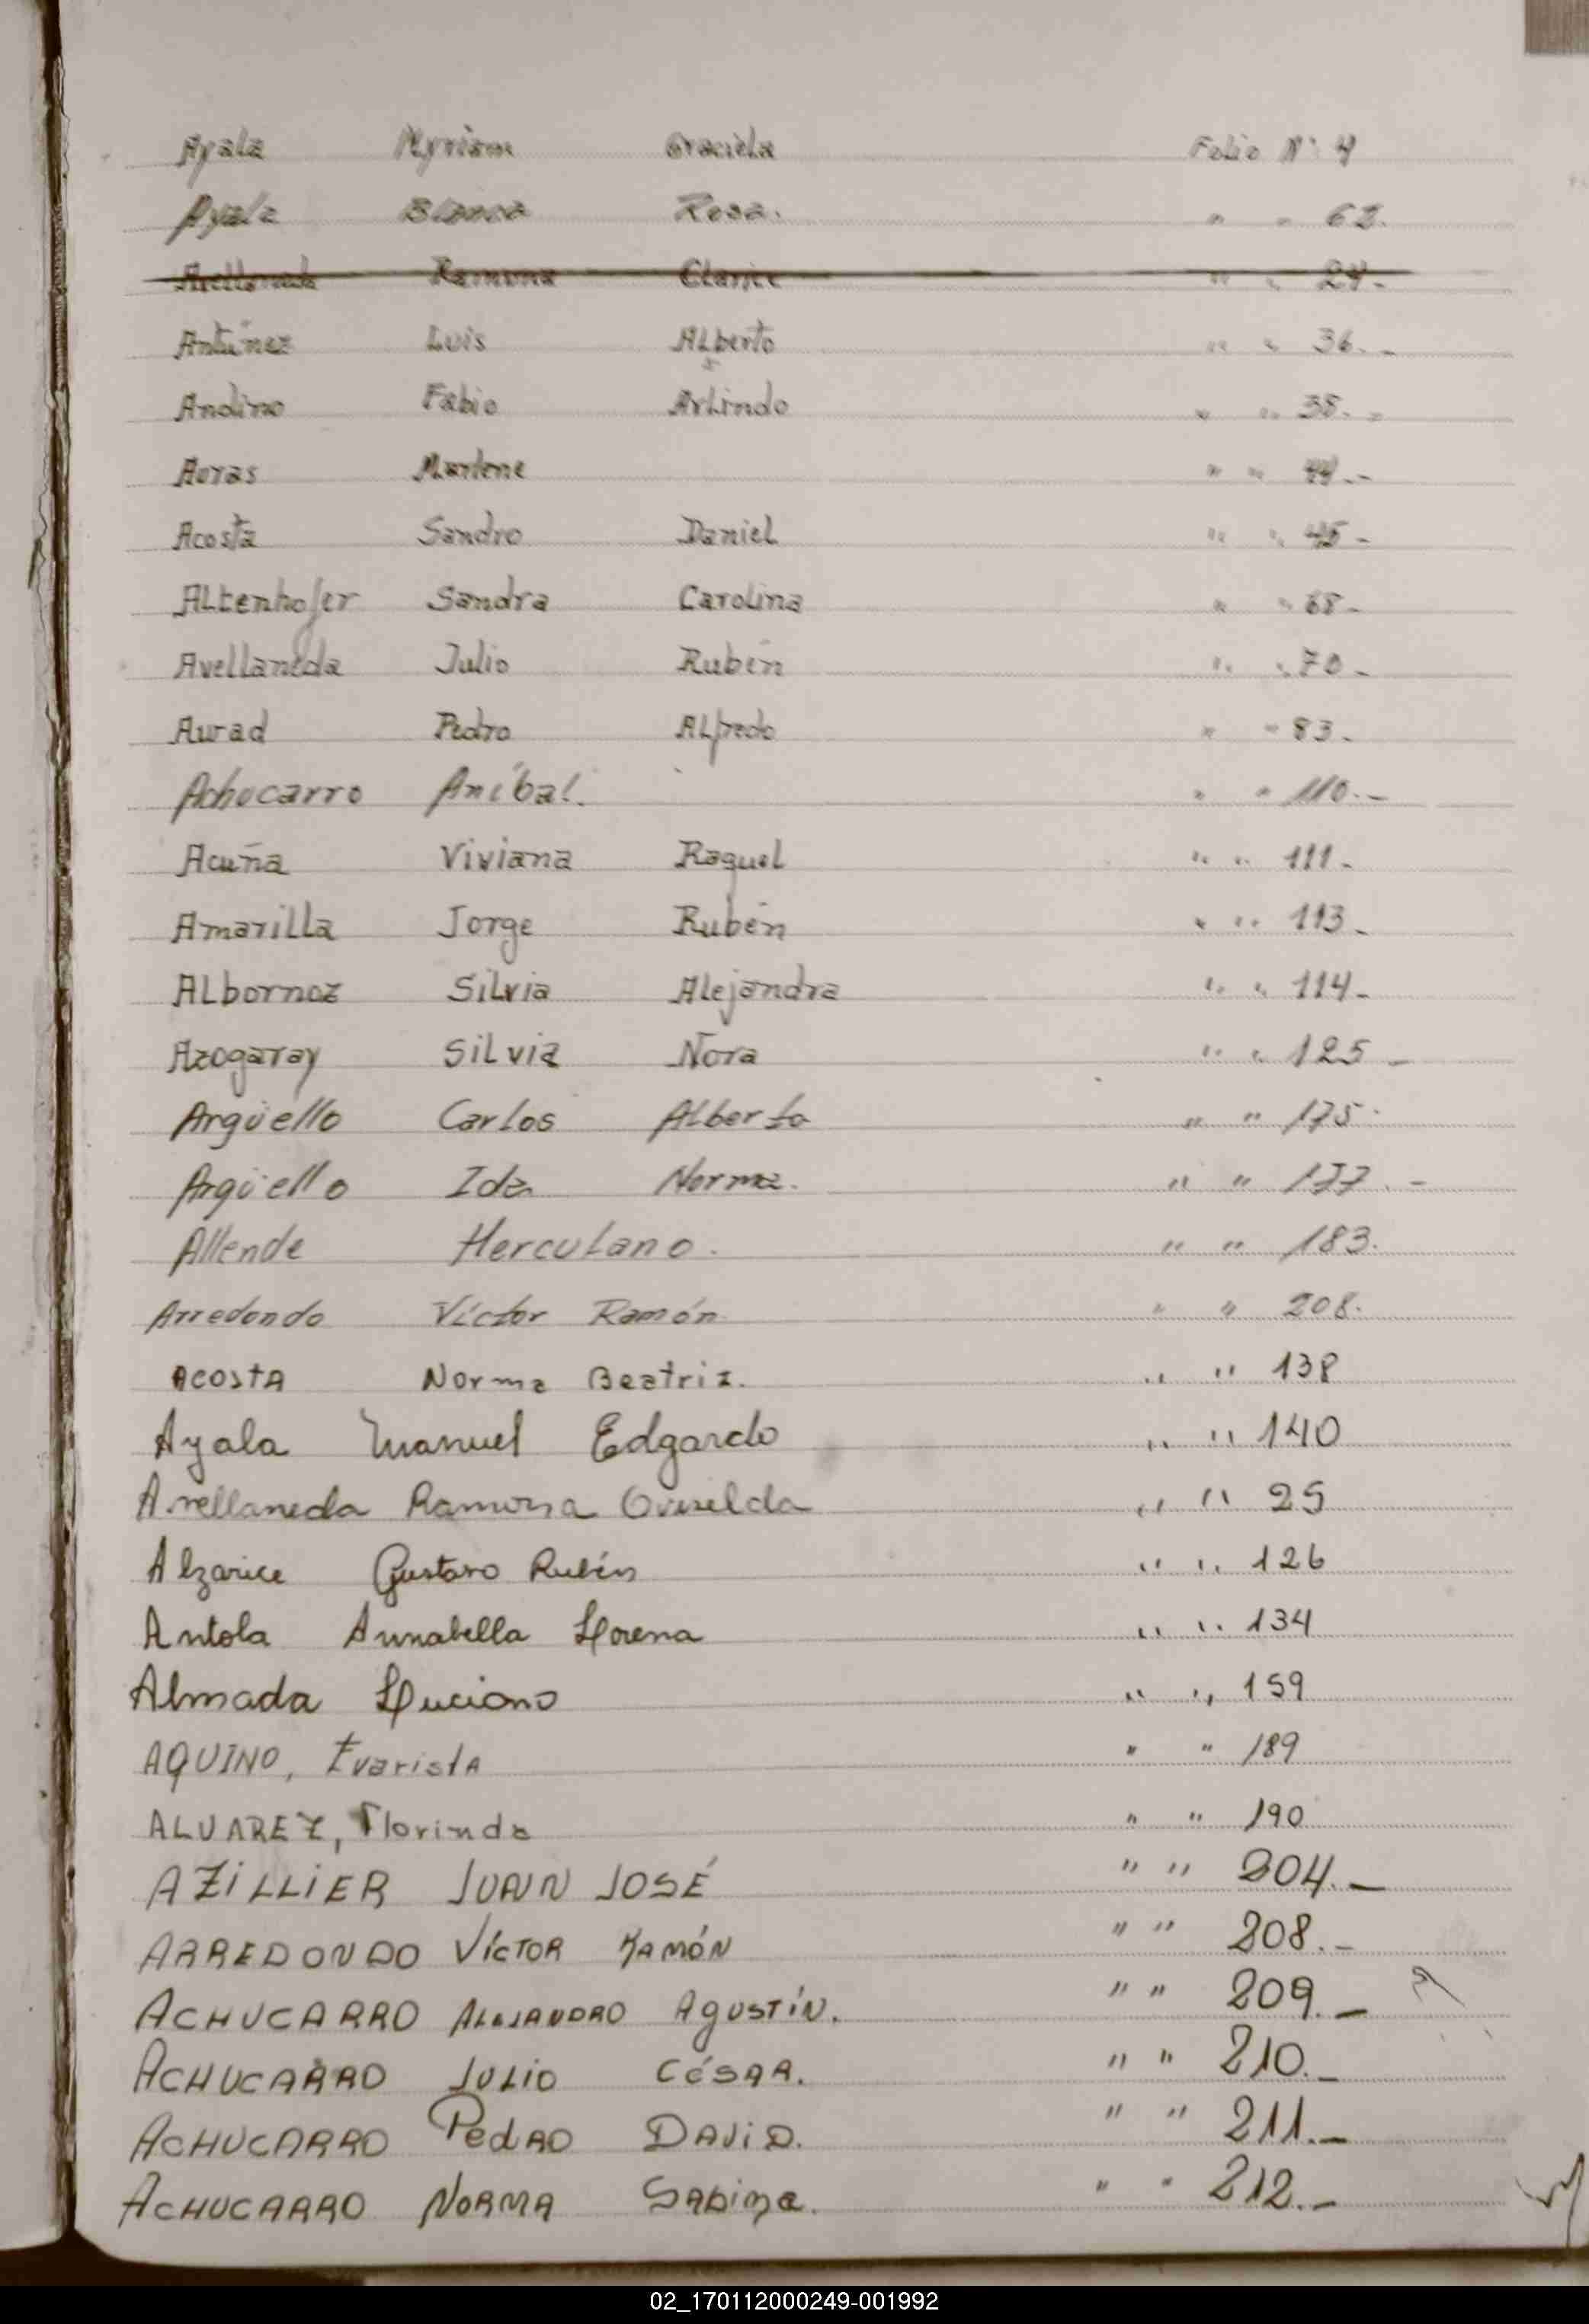 Ayala Myriam Graciela Folio Nº 4
Ayala Blanca Rosa. " " 62.
Avellaneda Ramona Clarice " " 24.-
Antúnez Luis ALberto " " 36.-
Andino Fabio Arlindo " " 38.-
Auras Marlene " " 44.-
Acosta Sandro Daniel " " 45-
ALtenhofer Sandra Carolina " " 68-
Avellaneda Julio Rubén " " 70-
Awad Pedro ALfredo " " 83.
Achucarro Aníbal. " " 110.-
Acuña Viviana Raquel " " 111-
AmariLLa Jorge Rubén " " 113-
ALbornoz SiLvia Alejandra " " 114-
Azogaray SiLvia Nora " " 125-
Argüello Carlos ALberto " " 175.
Argüello Ida Norma. " " 177.-
Allende HercuLano. " " 183.
Arredondo Víctor Ramón " " 208.
ACOSTA Norma Beatriz. " " 138
Ayala Manuel Edgardo " " 140
Avellaneda Ramona " " 25
Gustavo Rubén " " 126
Antola Annabella Lorena " " 134
Almada Luciano " " 159
AQUINO, EvaristA " " 189
ALVAREZ, Florinda " " 190
AZILLIER JUAN JOSÉ " " 204.-
ARREDONDO VÍCTOR RAMÓN " " 208.-
ACHUCARRO ALEJANDRO AgUSTÍN. " " 209.-
ACHUCARRO JULIO CÉSAR. " " 210.-
ACHUCARRO PEdRO DAViD. " " 211.-
ACHUCARRO NORMA SABina. " " 212.-
02_170112000249-001992